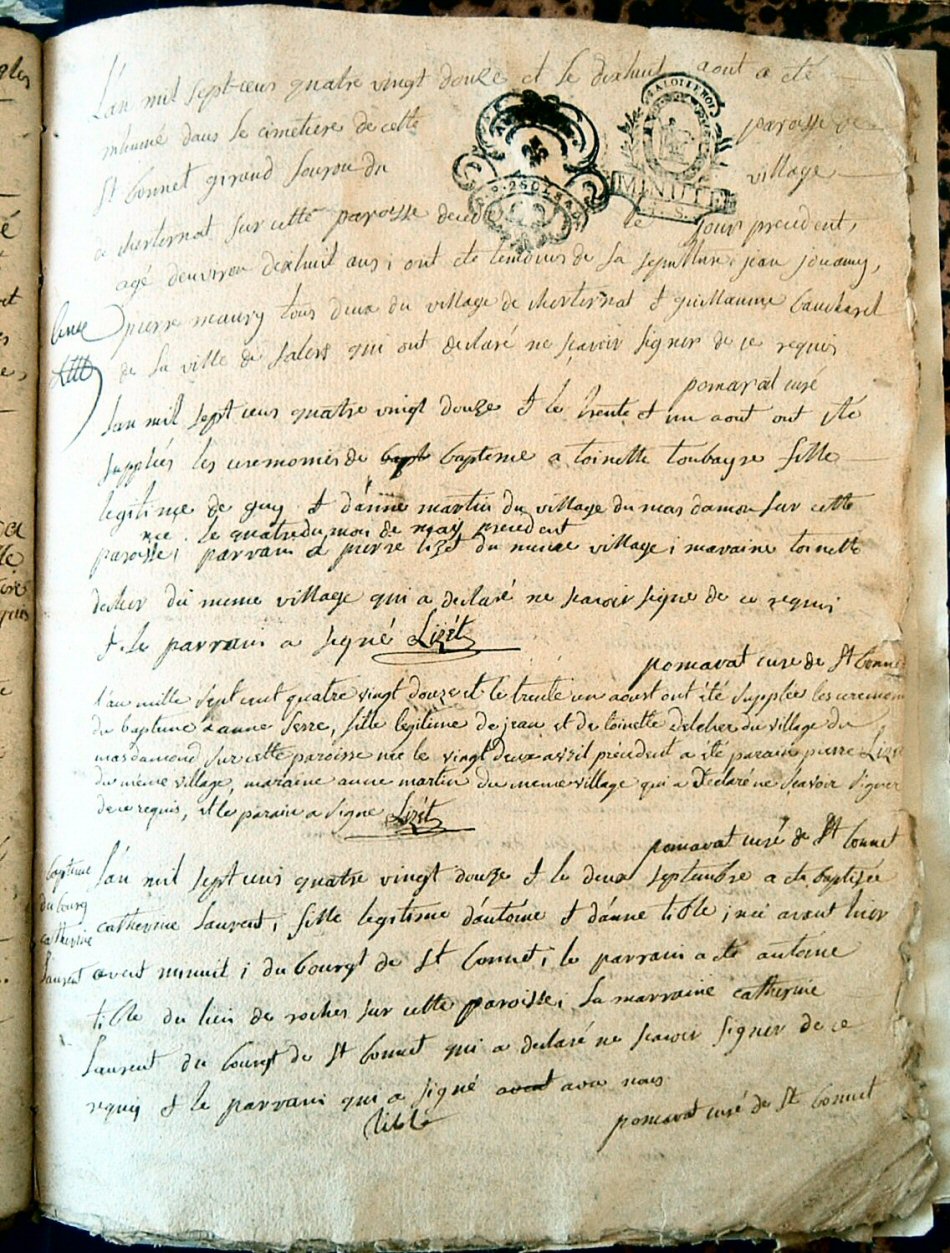 L'an mil sept cens quatre vingt douze et le dixhuit aout a eté
inhumé dans le cimetiere de cette paroisse de
St bonnet giraud du village
sur cette paroisse decedé le jour precedent,
agé denviron dixhuit ans; ont eté temoins de sa sepulture jean
pierre maury tous deux du village de & guillaume
de la ville de salers qui ont declaré ne sçavoir signer de ce requis
pomarat curé
Lan mil sept cens quatre vingt douze & le trente & un aout ont eté
supplées les ceremonies de bapt bapteme a toinette toubayre fille
legitime de guy & d'anne martin du village du mas damon sur cette
nee le quatre du mois de may precedent
paroisse; parrain a pierre lizet du meme village; maraine toinette
delcher du meme village qui a declaré ne scavoir signe de ce requis
& le parrain a signé Lizét
pomarat curé de St bonnet
l'an mille sept cent quatre vingt douze et le trente un aoust ont été supplée les ceremon
du bapteme a anne serre, fille legitime de jean et de toinette delcher du village du
masdamond sur cette paroisse née le vingt deux avril précédent a été parain pierre Lizet
du meme village, maraine anne martin du meme village qui a Déclaré ne scavoir signer
de ce requis, et le parain a signé Lizét
pomarat curé de St bonnet
bapteme
du bourg
catherine
laurent
L'an mil sept cens quatre vingt douze & le deux septembre a eté baptisée
catherine laurent, fille legitime d'antoine & d'anne tible; née avant hier
avent minuit; du bourgt de St bonnet; le parrain a eté antoine
tible du lieu de rochers sur cette paroisse; la marraine catherine
laurent du bourgt de St bonnet qui a declaré ne scavoir signer de ce
requis & le parrain qui a signé avat avec nous
tible
pomarat curé de St bonnet
LA LOI LE ROI
MINUTE